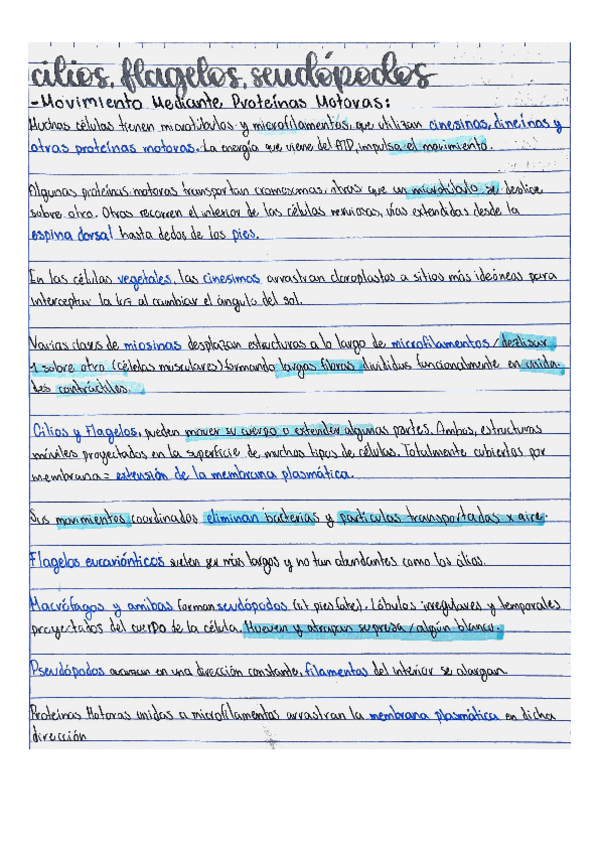 cilios, flagelos, seudópodos
-Movimiento Mediante Proteínas Motoras:
Muchas células tienen microtúbulos y microfilamentos, que utilizan cinesinas, dineínas y
otras proteínas motoras. La energía que viene del ATP, impulsa el movimiento.
Algunas proteínas motoras transportan cromosomas, otras que un microtúbulo se deslice
sobre otro. Otras recorren el interior de las células nerviosas, vías extendidas desde la
espina dorsal hasta dedos de los pies.
En las células vegetales, las cinesinas arrastran cloroplastos a sitios más idóneas para
interceptar la luz al cambiar el ángulo del sol.
Varias clases de miosinas desplazan estructuras a lo largo de microfilamentos / deslizar
1 sobre otro (células musculares) formando largas fibras divididas funcionalmente en unida-
des contráctiles.
Cilios y Flagelos, pueden mover su cuerpo o extender algunas partes. Ambos, estructuras
móviles proyectados en la superficie de muchos tipos de células. Totalmente cubiertos por
membrana = extensión de la membrana plasmática.
Sus movimientos coordinados eliminan bacterias y partículas transportadas x aire.
Flagelos eucariónticos suelen ser más largos y no tan abundantes como los cilios.
Macrófagos y amibas forman seudópodos (pies false). Lóbulos irregulares y temporales
proyectados del cuerpo de la célula. Mueven y atrapan su presa / algún blanco.
Pseudópodos avanzan en una dirección constante, filamentos del interior se alargan
Proteínas Motoras unidas a microfilamentos arrastran la membrana plasmática en dicha
dirección